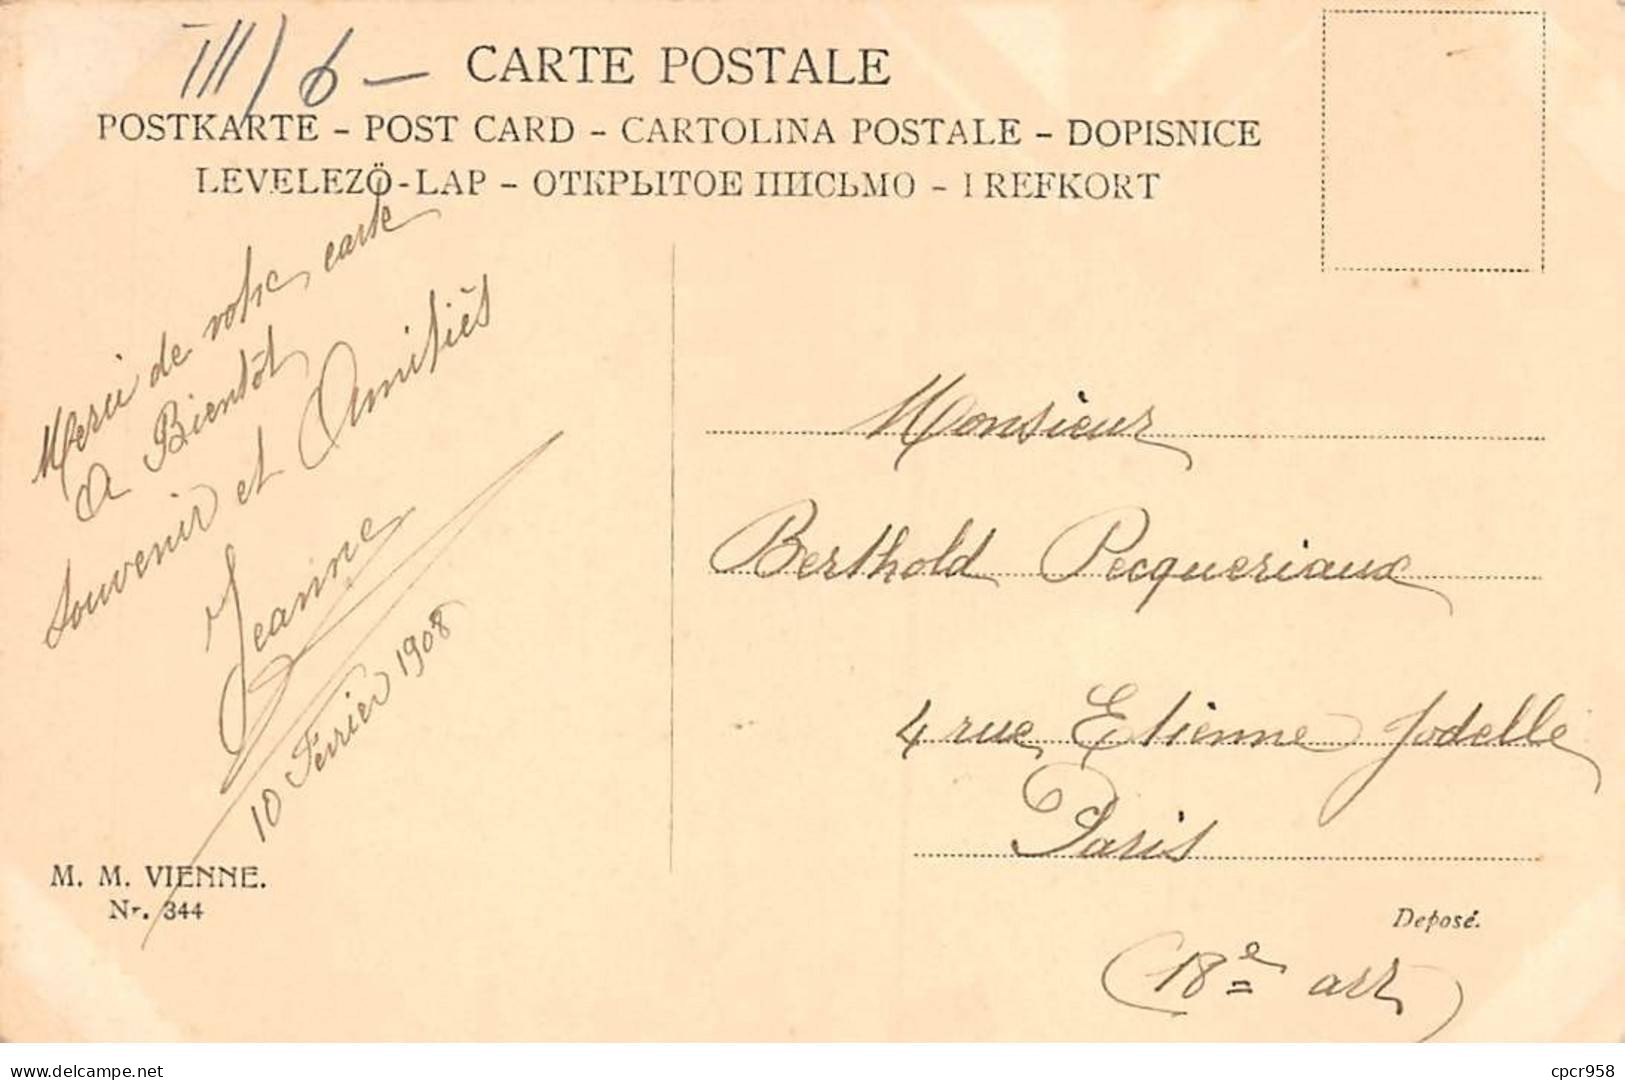 III/6 —
CARTE POSTALE
POSTKARTE – POST CARD – CARTOLINA POSTALE – DOPISNICE
LEVELEZÖ-LAP – ОТКРЫТОЕ ПИСЬМО – I REFKORT
Merci de votre carte
A Bientôt
Souvenir et Amitiés
Jeanne
10 Février 1908
M. M. VIENNE.
Nr. 344
Monsieur
Berthold Pecqueriaux
4 rue Etienne Jodelle
Paris
Deposé.
(18e arr)
www.delcampe.net
cpcr958